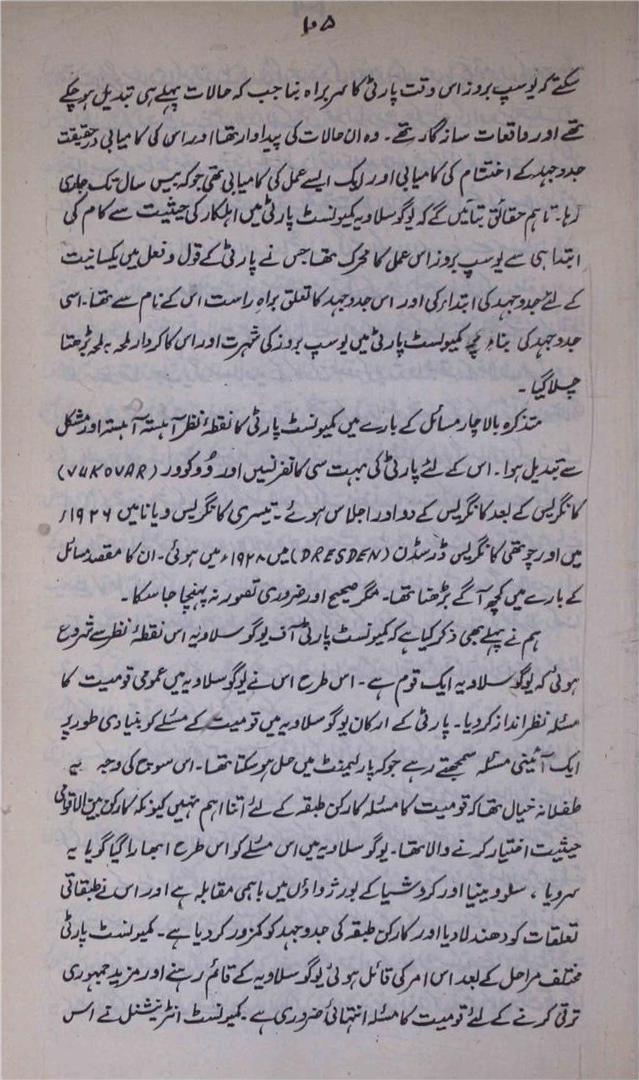 ۱۰۵
سکتے کہ یوسپ بروز اس وقت پارٹی کا سربراہ بنا جب کہ حالات پہلے ہی تبدیل ہو چکے
تھے اور واقعات سازگار تھے۔ وہ ان حالات کی پیداوار تھا اور اس کی کامیابی درحقیقت
جدوجہد کے اختتام کی کامیابی اور ایک ایسے عمل کی کامیابی تھی جو کہ بیس سال تک جاری
رہا۔ تاہم حقائق بتائیں گے کہ یوگوسلاویہ کمیونسٹ پارٹی میں اہلکار کی حیثیت سے کام کی
ابتدا ہی سے یوسپ بروز اس عمل کا محرک تھا جس نے پارٹی کے قول و فعل میں یکسانیت
کے لئے جدوجہد کی ابتداء کی اور اس جدوجہد کا تعلق براہِ راست اس کے نام سے تھا۔ اسی
جدوجہد کی بناء پر کمیونسٹ پارٹی میں یوسپ بروز کی شہرت اور اس کا کردار لمحہ بہ لمحہ بڑھتا
چلا گیا۔
متذکرہ بالا چار مسائل کے بارے میں کمیونسٹ پارٹی کا نقطۂ نظر آہستہ آہستہ اور مشکل
سے تبدیل ہوا۔ اس کے لئے پارٹی کی بہت سی کانفرنسیں اور وُوکوور (VUKOVAR)
کانگریس کے بعد کانگریس کے دو اور اجلاس ہوئے۔ تیسری کانگریس ویانا میں ۱۹۲۶ء
میں اور چوتھی کانگریس ڈرسڈن (DRESDEN) میں ۱۹۲۸ء میں ہوئی۔ ان کا مقصد مسائل
کے بارے میں کچھ آگے بڑھنا تھا۔ مگر صحیح اور ضروری تصور نہ پہنچا جا سکا۔
ہم نے پہلے بھی ذکر کیا ہے کہ کمیونسٹ پارٹی آف یوگوسلاویہ اس نقطۂ نظر سے شروع
ہوئی کہ یوگوسلاویہ ایک قوم ہے۔ اس طرح اس نے یوگوسلاویہ میں عمومی قومیت کا
مسئلہ نظر انداز کر دیا۔ پارٹی کے ارکان یوگوسلاویہ میں قومیت کے مسئلے کو بنیادی طور پر
ایک آئینی مسئلہ سمجھتے رہے جو کہ پارلیمنٹ میں حل ہو سکتا تھا۔ اس سوچ کی وجہ یہ
طفلانہ خیال تھا کہ قومیت کا مسئلہ کارکن طبقہ کے لئے اتنا اہم نہیں کیونکہ کارکن بین الاقوامی
حیثیت اختیار کرنے والا تھا۔ یوگوسلاویہ میں اس مسئلے کو اس طرح ابھارا گیا گویا یہ
سرویا، سلووینیا اور کروشیا کے بورژواؤں میں باہمی مقابلہ ہے اور اس نے طبقاتی
تعلقات کو دھندلا دیا اور کارکن طبقہ کی جدوجہد کو کمزور کر دیا ہے۔ کمیونسٹ پارٹی
مختلف مراحل کے بعد اس امر کی قائل ہوئی یوگوسلاویہ کے قائم رہنے اور مزید جمہوری
ترقی کرنے کے لئے قومیت کا مسئلہ انتہائی ضروری ہے۔ کمیونسٹ انٹرنیشنل نے اس